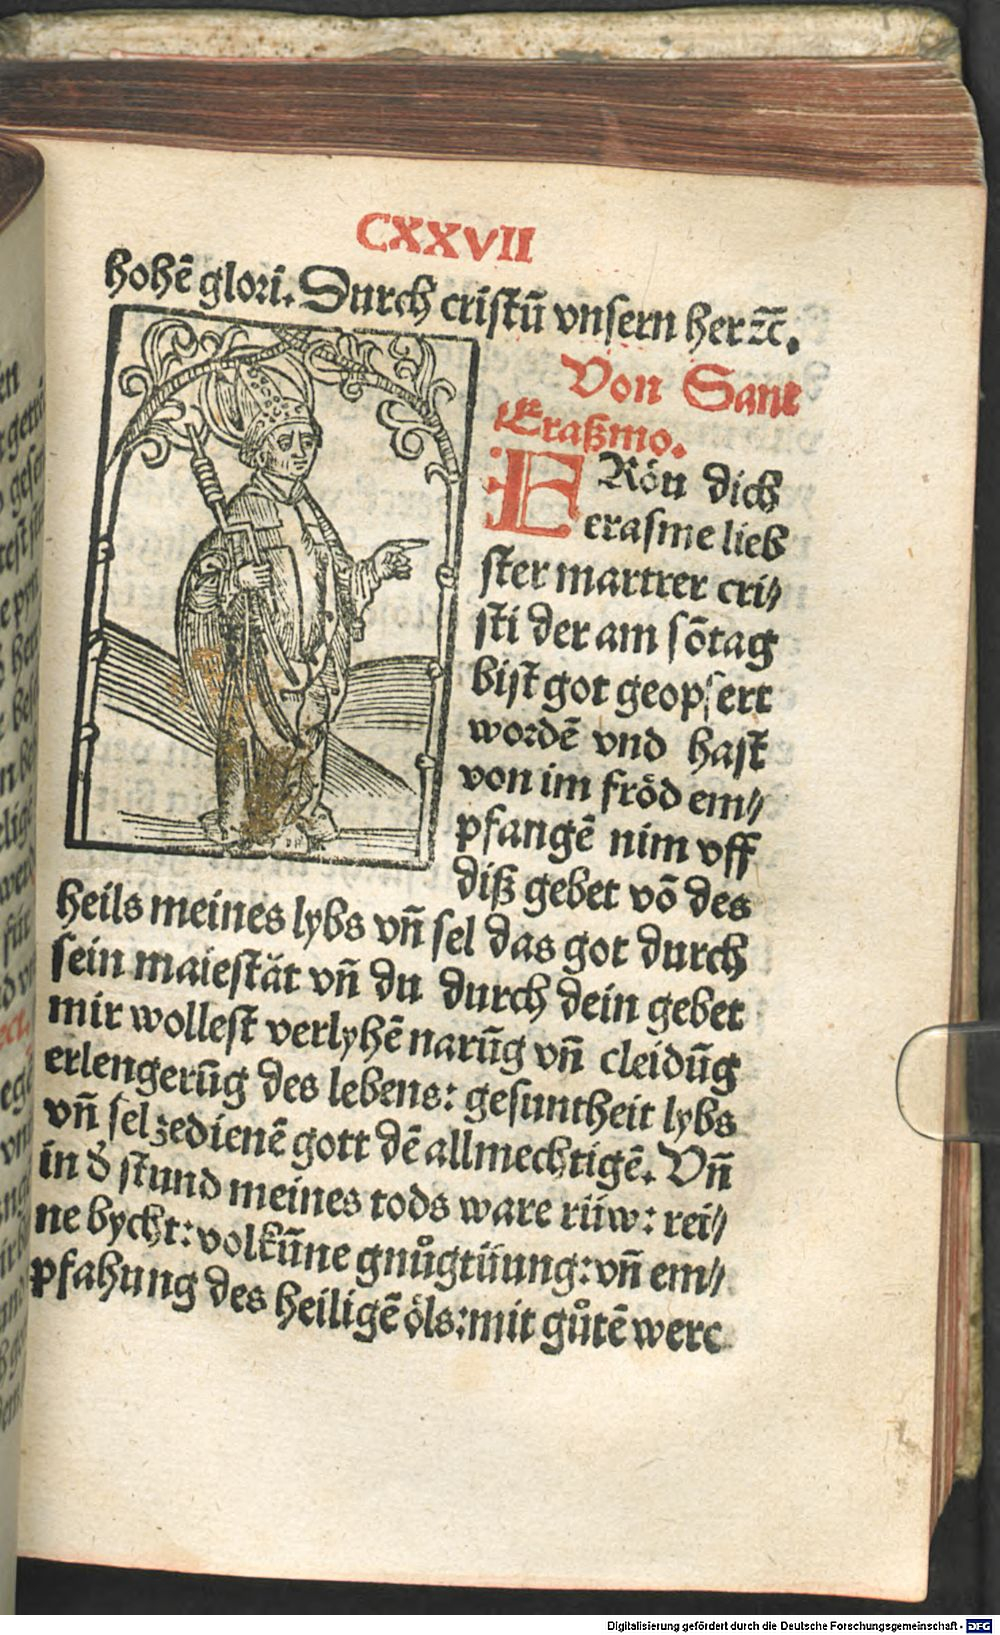 CXXVII
hohē glori. Durch cristū vnsern her ꝛc̄.
Von Sant
Eraßmo.
ERöu dich
erasme lieb
ster martrer cri⸗
sti der am sōtag
bist got geopfert
wordē vnd hast
von im fröd em⸗
pfangē nim vff
diß gebet vō des
heils meines lybs vn̄ sel das got durch
sein maiestät vn̄ du durch dein gebet
mir wollest verlyhē narūg vn̄ cleidūg
erlengerūg des lebens: gesuntheit lybs
vn̄ sel zedienē gott dē allmechtigē. Vn̄
in d̓ stund meines tods ware rüw: rei⸗
ne bycht: volkūne gnůgtüung: vn̄ em⸗
pfahung des heiligē öls: mit gůtē werc
Digitalisierung gefördert durch die Deutsche Forschungsgemeinschaft - DFG